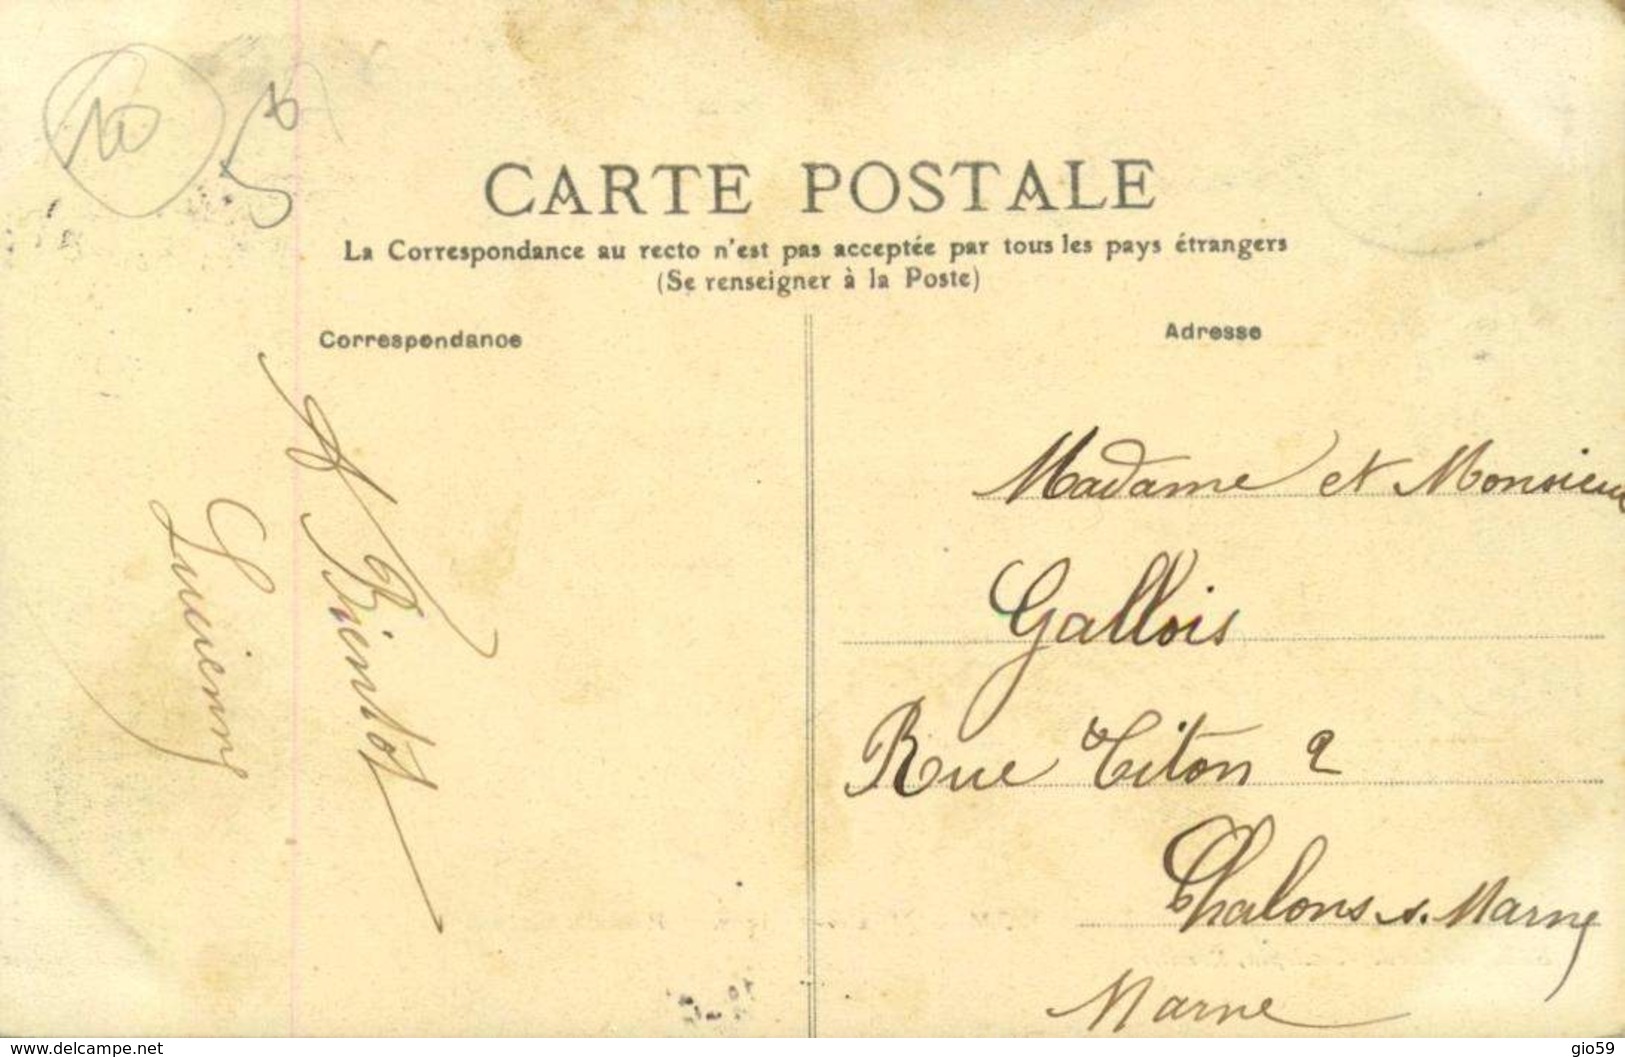 10
CARTE POSTALE
La Correspondance au recto n'est pas acceptée par tous les pays étrangers
(Se renseigner à la Poste)
Correspondance
Adresse
A Bientot
Lucienne
Madame et Monsieur
Gallois
Rue Titon 2
Chalons s. Marne
Marne
www.delcampe.net
gio59